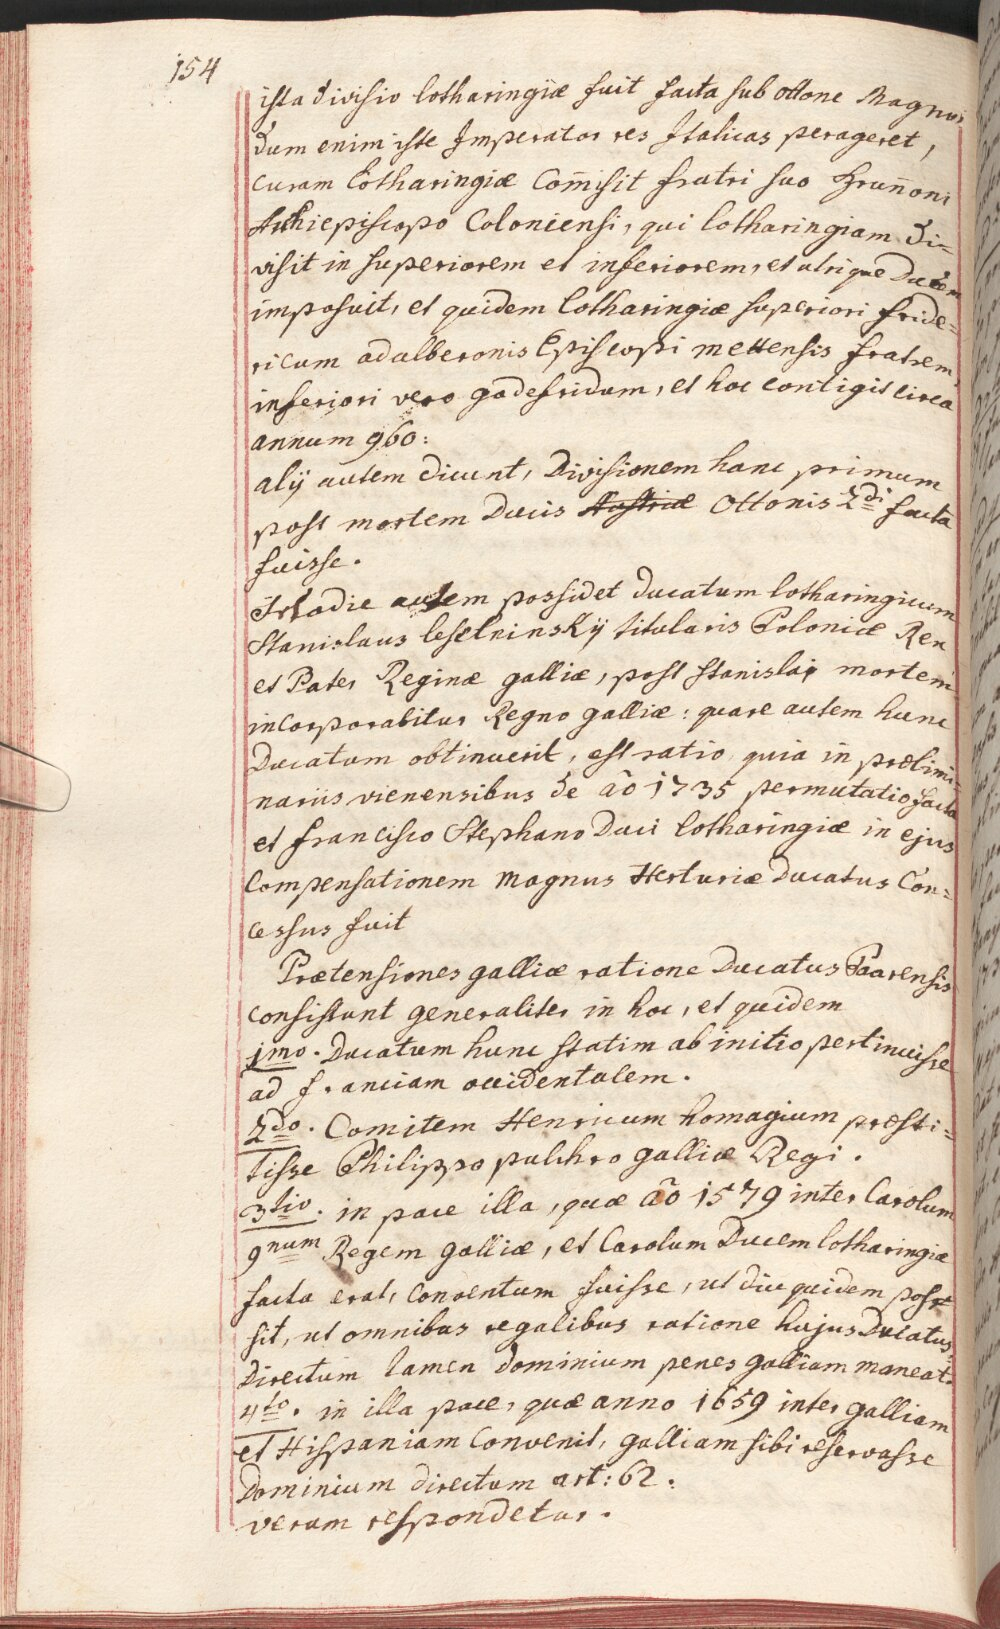 154
ista divisio lotharingiæ fuit facta sub ottone Magno,
dum enim iste Imperator res Italicas perageret,
curam Lotharingiæ Com̄isit fratri suo Brun̄oni
Archiepiscopo Coloniensi, qui lotharingiam di-
visit in superiorem et inferiorem, et utrique Ducem
imposuit, et quidem lotharingiæ superiori fride-
ricum adalberonis Episcopi mettensis fratrem,
inferiori vero godefridum, et hoc contigit circa
annum 960:
alij autem dicunt, Divisionem hanc primum
post mortem Ducis Austriæ Ottonis 2di facta
fuisse.
Hodie autem possidet ducatum lotharingicum
Stanislaus leselninskij titularis Poloniæ Rex
et Pater Reginæ galliæ, post stanislai mortem
incorporabitur Regno galliæ: quare autem hunc
Ducatum obtinuerit, est ratio quia in prælimi-
nariis vienensibus de aō 1735 permutatio facta
et francisco Stephano Duci lotharingiæ in ejus
Compensationem Magnus Hertruriæ Ducatus Con-
cessus fuit
Prætensiones galliæ ratione Ducatus Baarensis
consistunt generaliter in hoc, et quidem
1mo. Ducatum hunc statim ab initio pertinuisse
ad franciam occidentalem.
2do. Comitem Henricum homagium præsti-
tisse Philippo pulchro galliæ Regi.
3tio. in pace illa, quæ aō 1579 inter Carolum
9num Regem galliæ, et Carolum Ducem lotharingiæ
facta erat, conventum fuisse, ut dux quidem pos-
sit, ut omnibus regalibus ratione hujus Ducatus,
directum tamen dominium penes galliam maneat.
4to. in illa pace, quæ anno 1659 inter galliam
et Hispaniam Convenit, galliam sibi reservasse
Dominium directum art: 62.
verum respondetur.